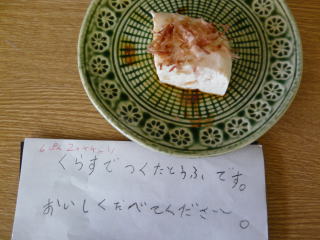 くらすで つくたとうふ です。
おいしくたべてんださー。